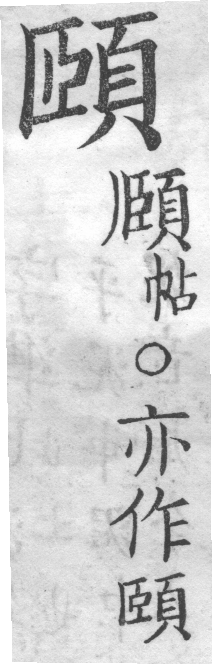 頤
頤帖○亦作頤